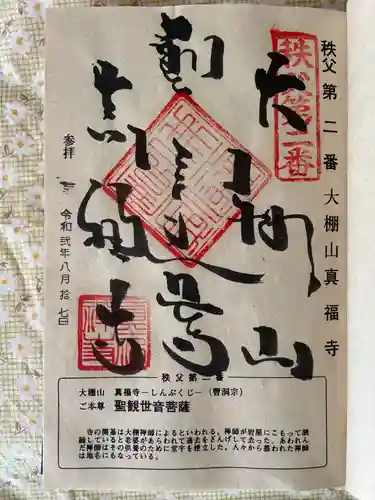 秩父第二番大棚山真福寺
秩父第二番
大棚山
真福寺
参拝
令和弐年八月拾七日
秩父第二番
大棚山 真福寺―しんぷくじ―(曹洞宗)
ご本尊 聖観世音菩薩
寺の開基は大棚禅師によるといわれる。禅師が岩屋にこもって読
誦していると老婆があらわれて過去をざんげして去った。あわれん
だ禅師はその供養のために堂宇を建立した。人々から慕われた禅師
は地名にもなっている。